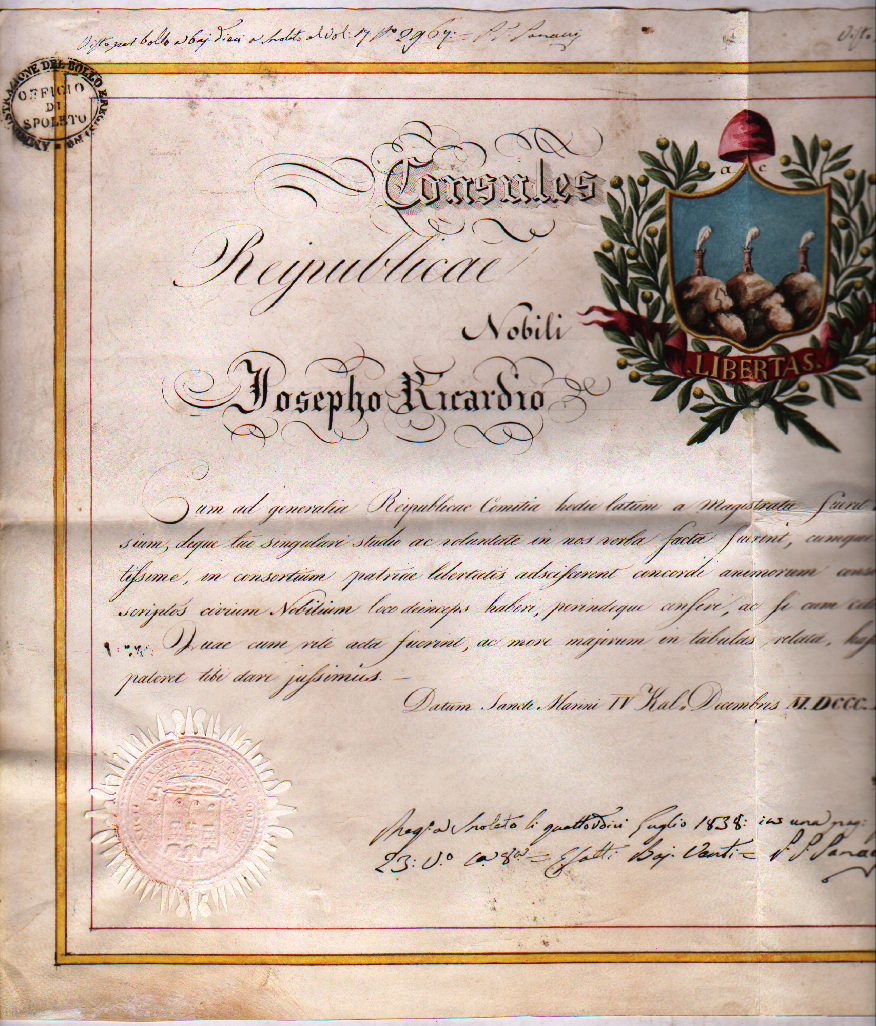 Visto per bollo a baj: dieci a Spoleto al Vol: 17 N.o 2967:
AMMINISTRAZIONE DEL BOLLO E REGISTRO
OFFICIO
DI
SPOLETO
Consules
Reipublicae
Nobili
Josepho Ricardio
LIBERTAS.
Cum ad generalia Reipublicae Comitia hodie latum a Magistratu fuerit
sium, deque tuo singulari studio ac voluntate in nos verba facta fuerint, cumque
tissime, in consortium patriae libertatis adsciscerent concordi animorum
scriptos civium Nobilium loco deinceps haberi, perindeque censeri, ac si cum
Quae cum rite acta fuerint, ac more majorum in tabulas relata,
pateret tibi dari jussimus. —
Datum Sancti Marini IV Kal. Decembris M.DCCC.
Spoleto li quattordici Luglio 1838: una pag:
23: V.o Ca. 8.a = Esatti Baj: Venti =